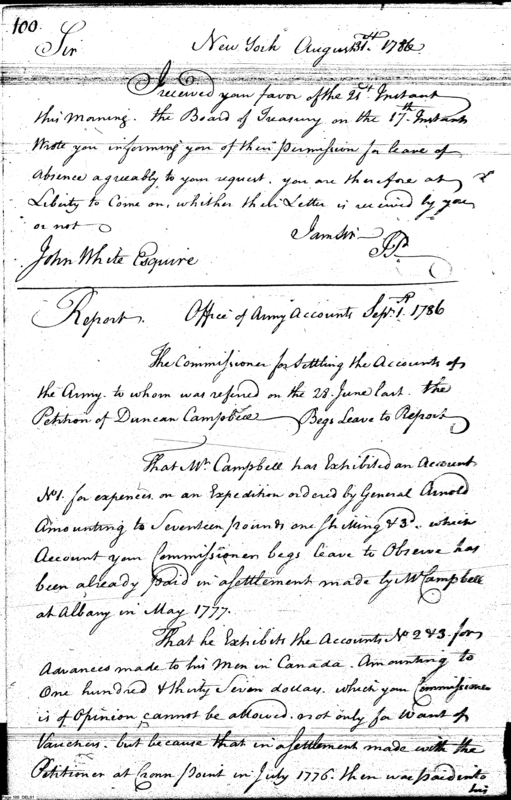 100.
Sir New York August 31st. 1786
I received your favor of the 21st Instant
this Morning. the Board of Treasury on the 17th. Instant
Wrote you informing you of their Permission for leave of
Absence agreeably to your request. you are therefore at
Liberty to Come on, whether their Letter is received by you
or not
I am Sir
John White Esquire
Report. Office of Army Accounts Sept. 1st. 1786
The Commissioner for Settling the Accounts of
the Army. to whom was referred on the 28. June last the
Petition of Duncan Campbell Begs Leave to Report
That Mr. Campbell has Exhibited an Account
No 1. for expences on an Expedition ordered by General Arnold
Amounting to Seventeen pounds one Shilling & 3d. which
Account your Commissioner begs leave to Observe has
been already Paid in a Settlement made by Mr. Campbell
at Albany in May 1777.
That he Exhibits the Accounts No 2 & 3. for
Advances made to his Men in Canada. Amounting to
One hundred & thirty Seven dollars. which your Commissioner
is of Opinion cannot be allowed. not only for Want of
Vouchers. but because that in a Settlement made with the
Petitioner at Crown Point in July 1776. there was paid into
his
Page 100